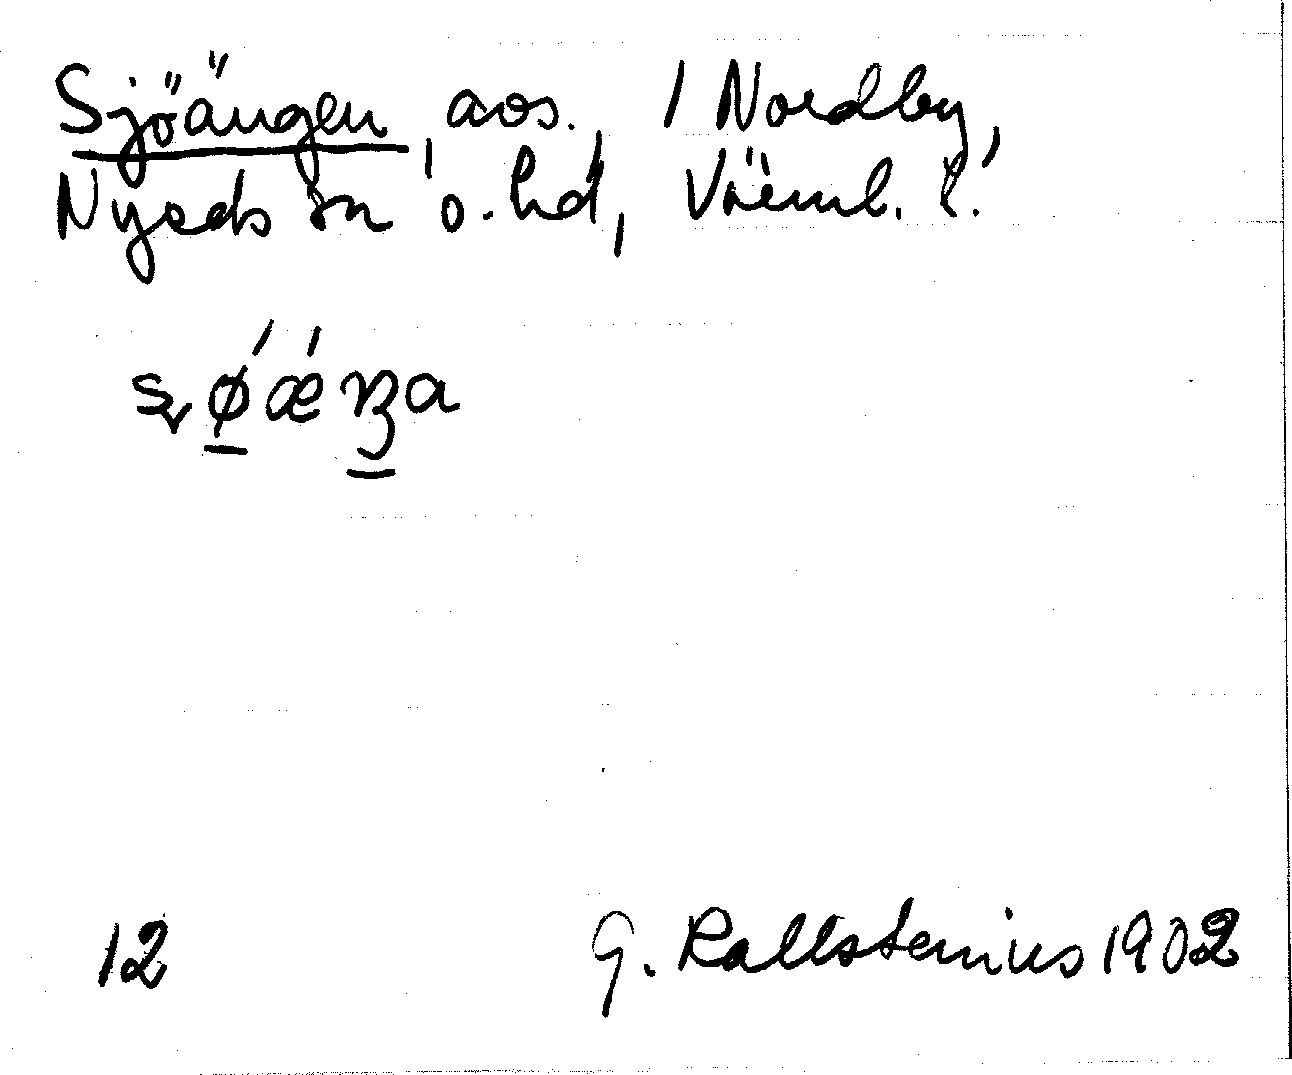 Sjöängen, avs. / Nordby,
Nyeds sn o. hd, Värml. l.
12 G. Kallstenius 1902